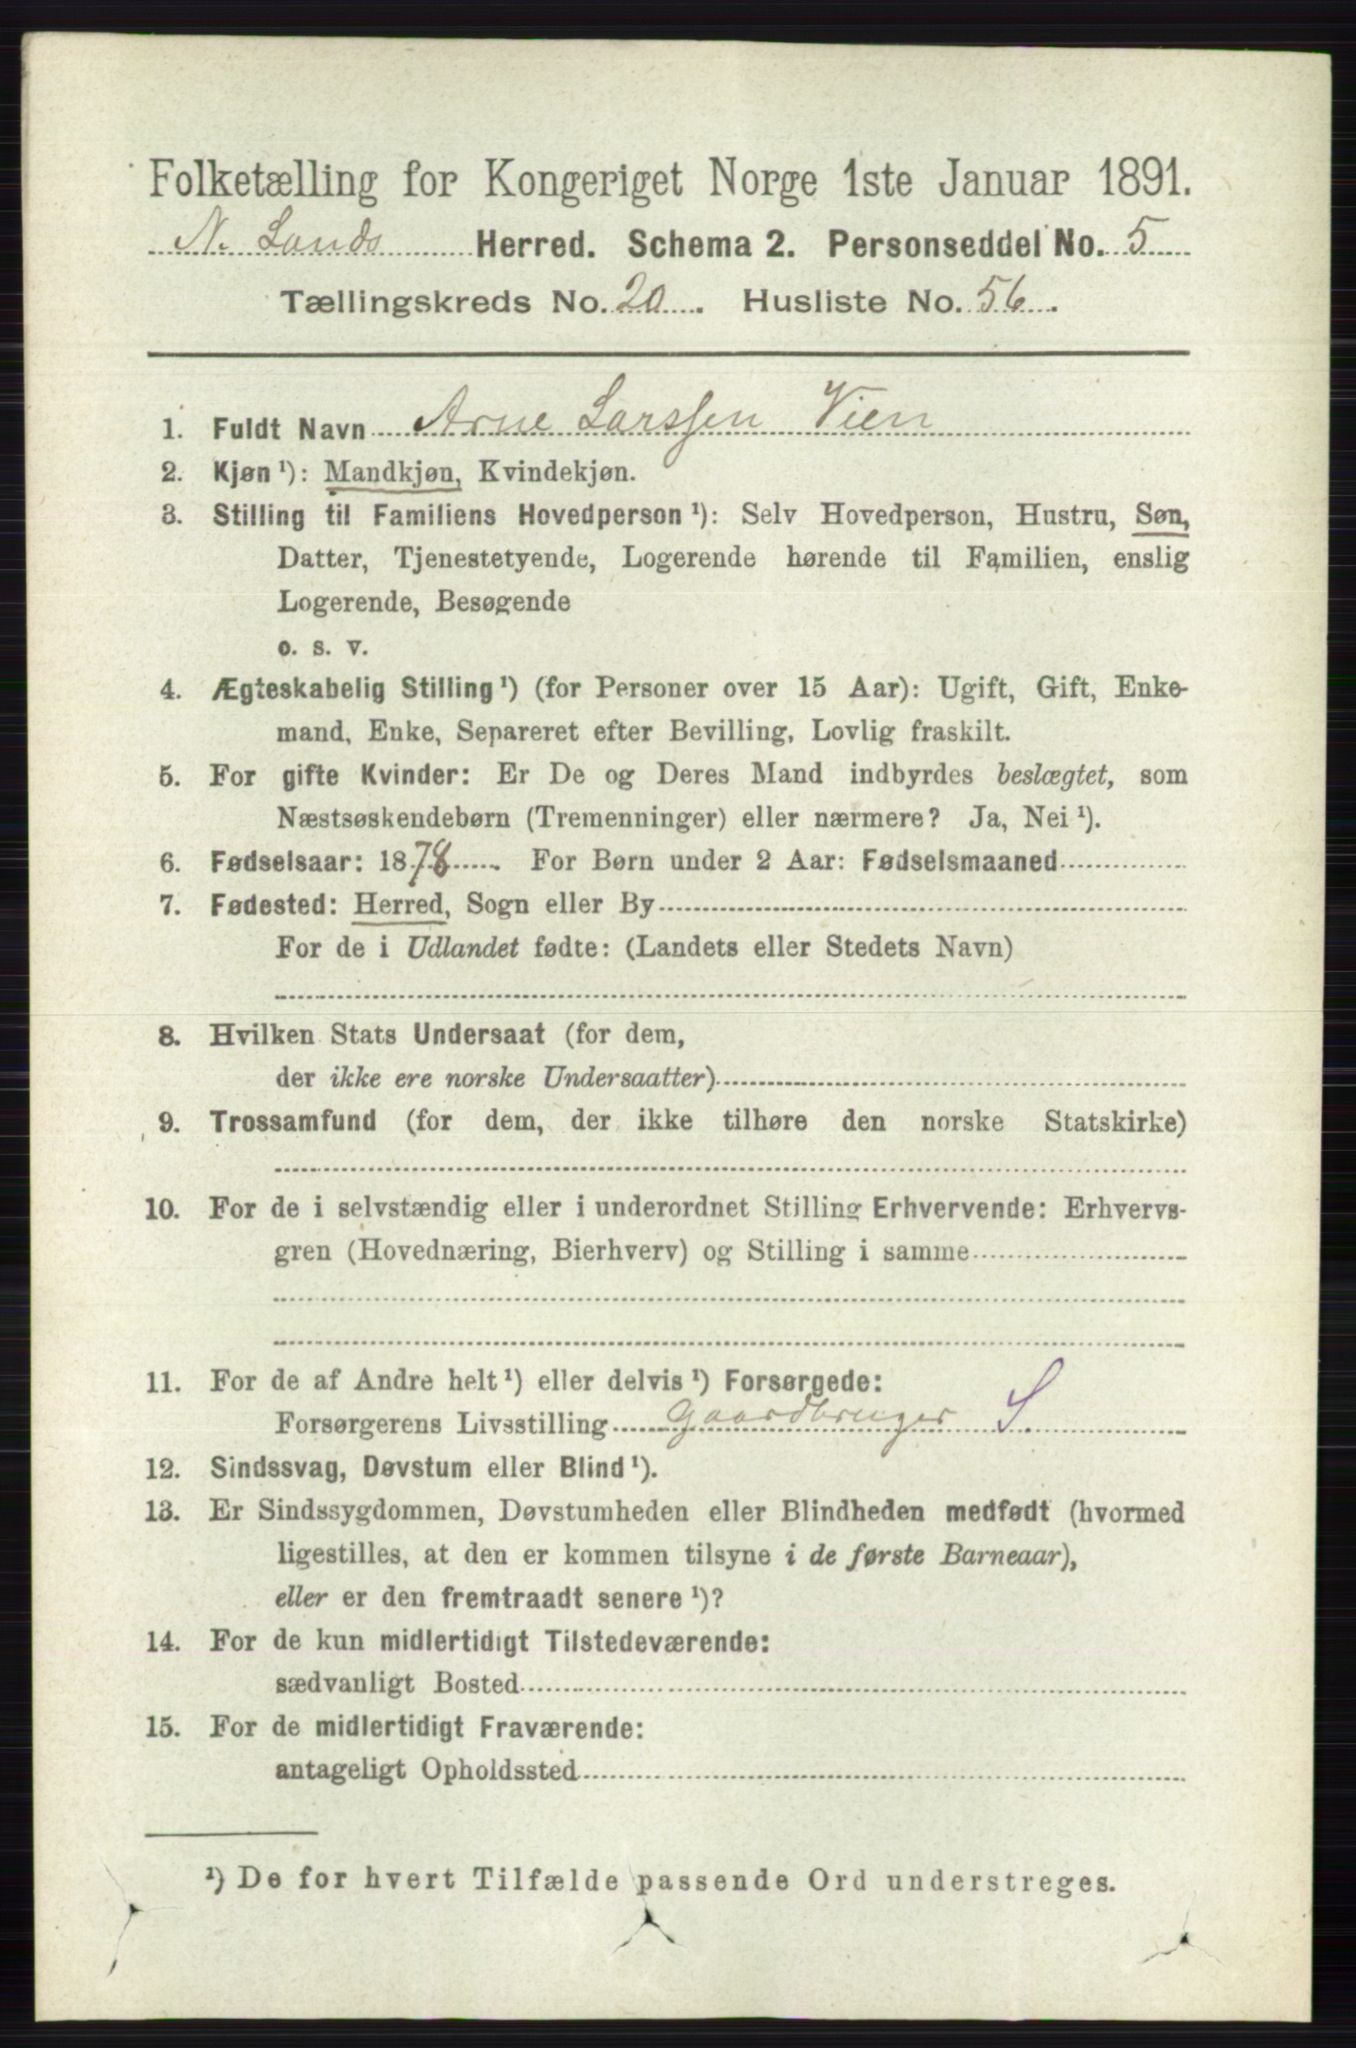 Folketælling for Kongeriget Norge 1ste Januar 1891.
N. Lands Herred. Schema 2. Personseddel No. 5
Tællingskreds No. 20. Husliste No. 56.
1. Fuldt Navn Arne Larssen Vien
2. Kjøn¹): Mandkjøn, Kvindekjøn.
3. Stilling til Familiens Hovedperson¹): Selv Hovedperson, Hustru, Søn,
Datter, Tjenestetyende, Logerende hørende til Familien, enslig
Logerende, Besøgende
o. s. v.
4. Ægteskabelig Stilling¹) (for Personer over 15 Aar): Ugift, Gift, Enke-
mand, Enke, Separeret efter Bevilling, Lovlig fraskilt.
5. For gifte Kvinder: Er De og Deres Mand indbyrdes beslægtet, som
Næstsøskendebørn (Tremenninger) eller nærmere? Ja, Nei¹).
6. Fødselsaar: 1878. For Børn under 2 Aar: Fødselsmaaned
7. Fødested: Herred, Sogn eller By
For de i Udlandet fødte: (Landets eller Stedets Navn)
8. Hvilken Stats Undersaat (for dem,
der ikke ere norske Undersaatter)
9. Trossamfund (for dem, der ikke tilhøre den norske Statskirke)
10. For de i selvstændig eller i underordnet Stilling Erhvervende: Erhvervs-
gren (Hovednæring, Bierhverv) og Stilling i samme
11. For de af Andre helt¹) eller delvis¹) Forsørgede:
Forsørgerens Livsstilling Gaardbruger S.
12. Sindssvag, Døvstum eller Blind¹).
13. Er Sindssygdommen, Døvstumheden eller Blindheden medfødt (hvormed
ligestilles, at den er kommen tilsyne i de første Barneaar),
eller er den fremtraadt senere¹)?
14. For de kun midlertidigt Tilstedeværende:
sædvanligt Bosted
15. For de midlertidigt Fraværende:
antageligt Opholdssted
¹) De for hvert Tilfælde passende Ord understreges.